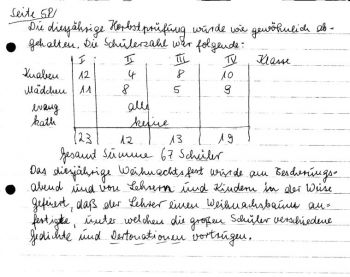 Seite 58/
Die diesjährige Herbstprüfung wurde wie gewöhnlich ab-
gehalten. Die Schülerzahl war folgende:
I II III IV Klasse
Knaben 12 4 8 10
Mädchen 11 8 5 9
evang alle
kath keine
23 12 13 19
Gesamt Summe 67 Schüler
Das diesjährige Weihnachtsfest wurde am Bescherungs-
abend und von Lehrern und Kindern in der Weise
gefeiert, daß der Lehrer einen Weihnachsbaum an-
festigte, unter welchen die großen Schüler verschiedene
Gedichte und Dertonationen vortrugen.